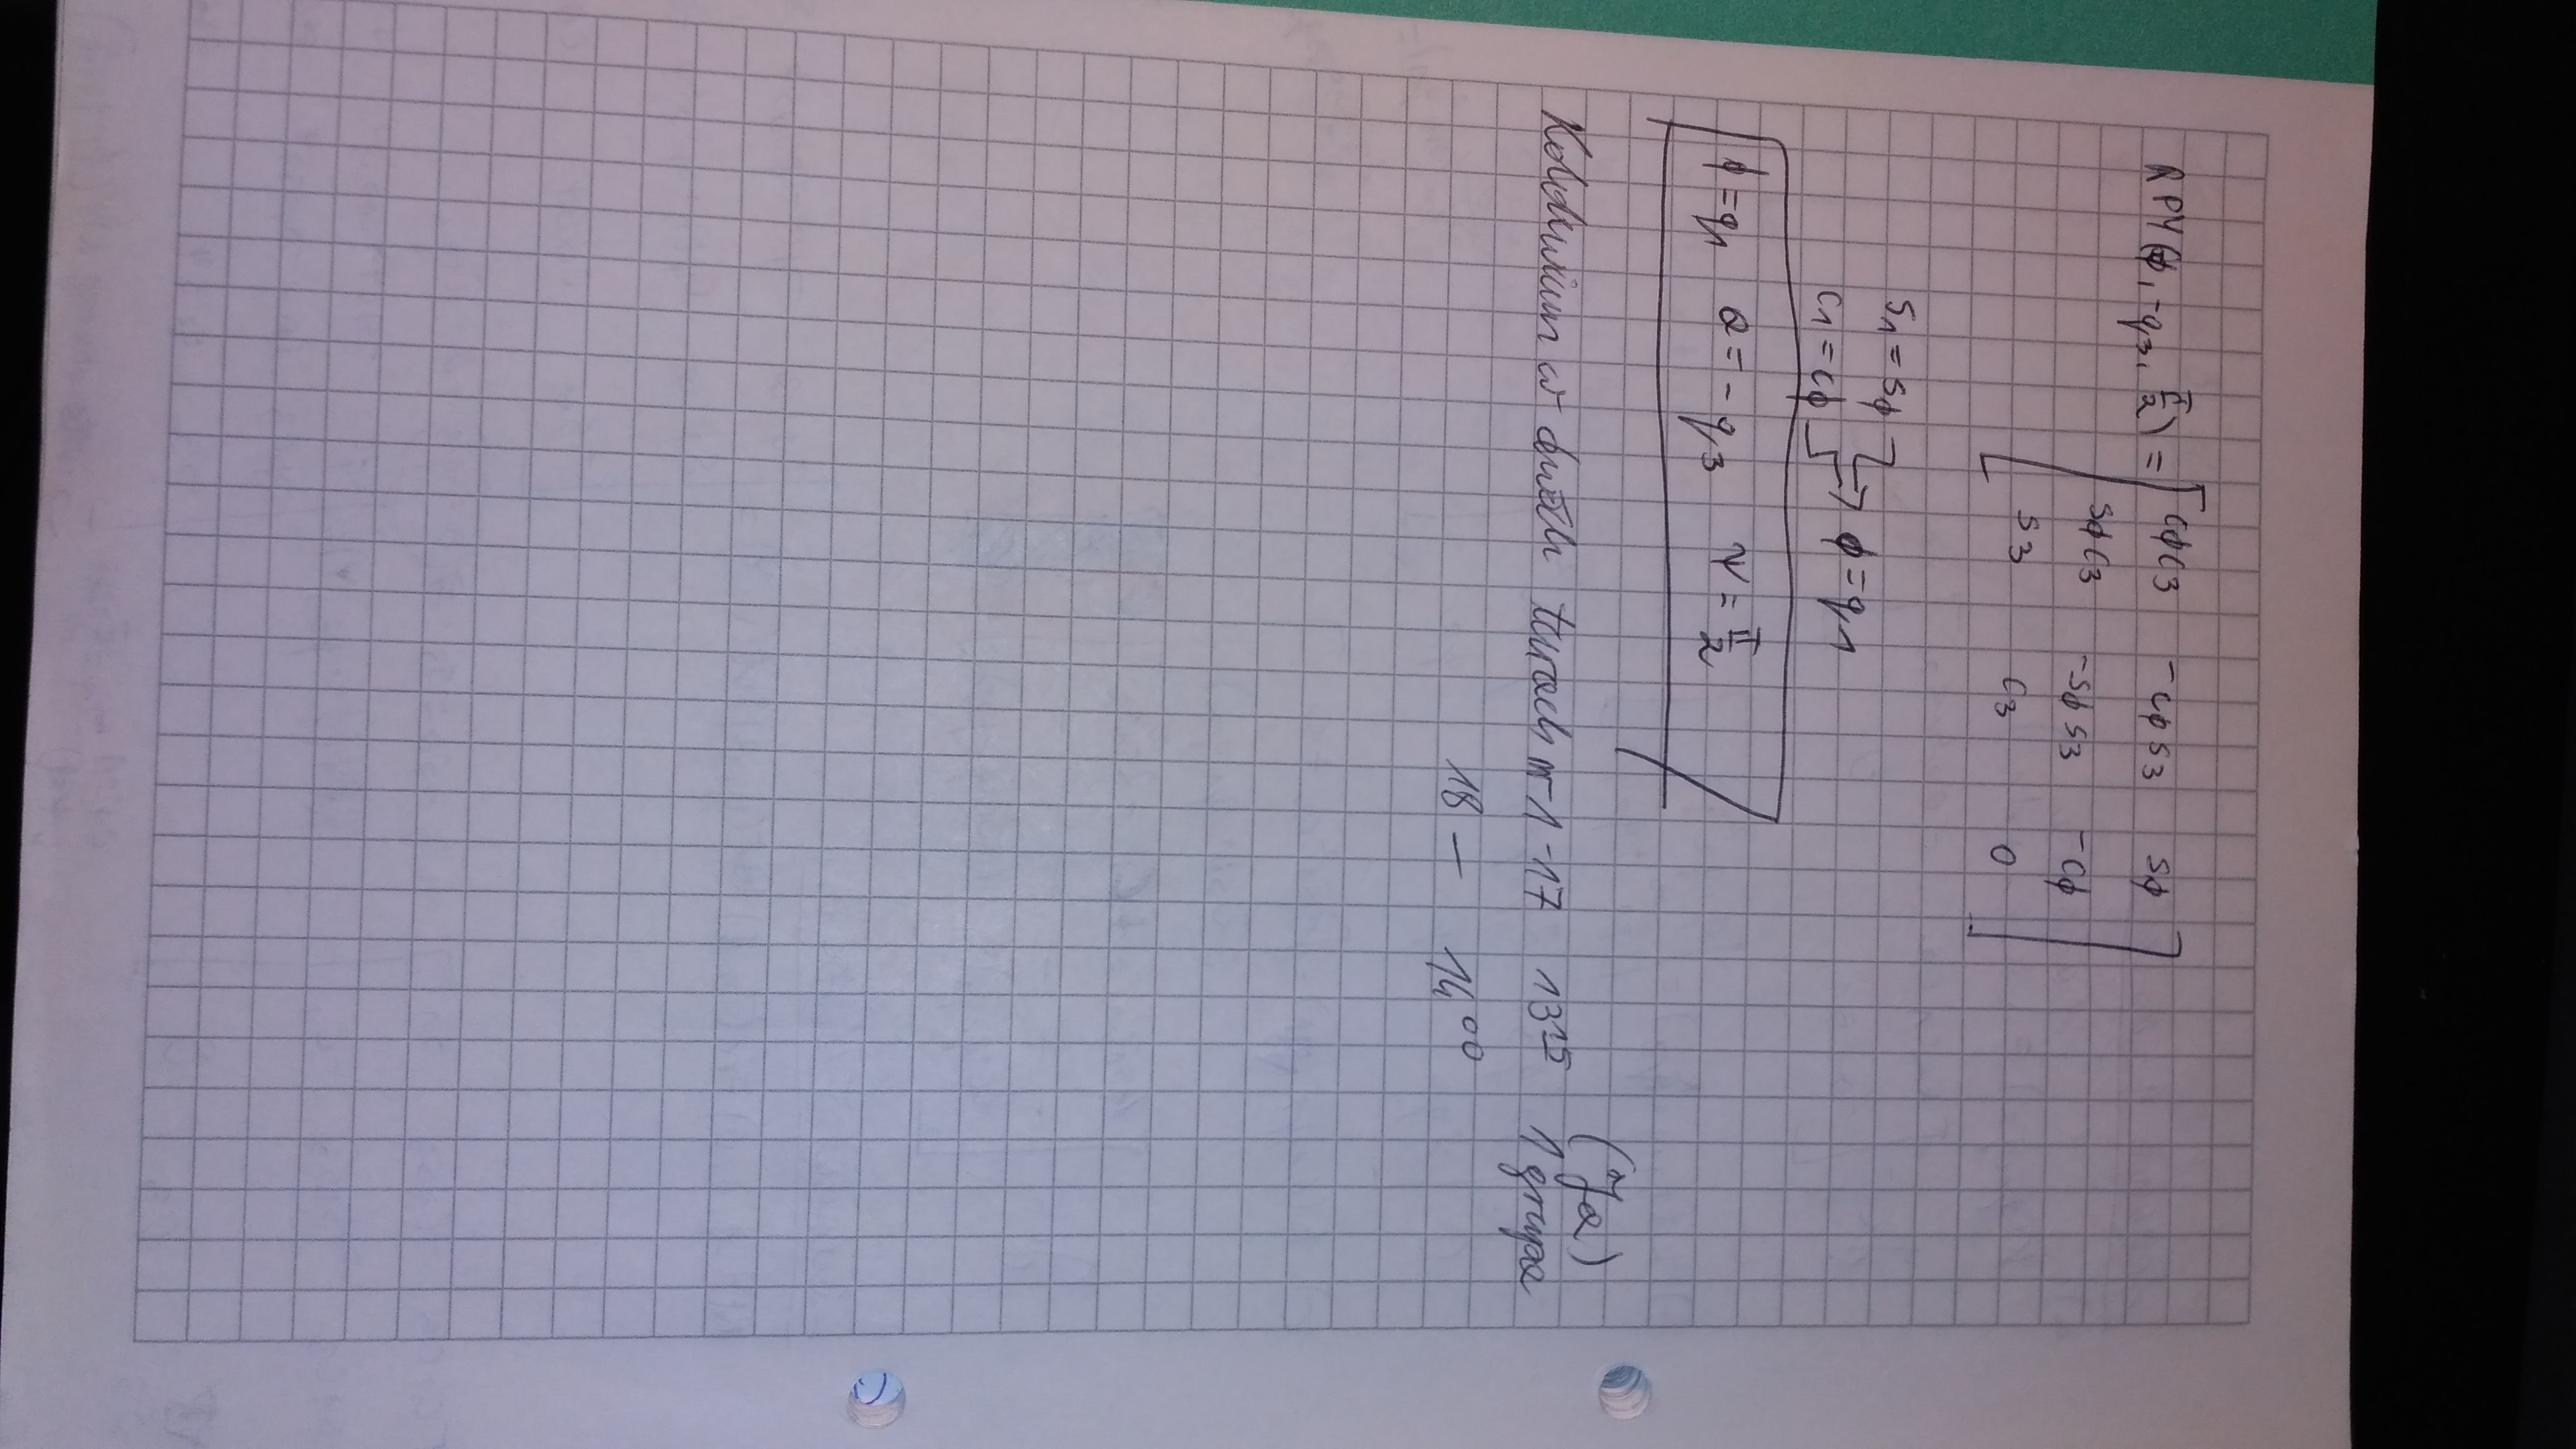 RPY(φ, -q3, π/2) = [ cφc3 -cφs3 sφ
sφc3 -sφs3 -cφ
s3 c3 0 ]
s1 = sφ
c1 = cφ → φ = q1
φ = q1 θ = -q3 ψ = π/2
(Ja)
Kolokwium w dwóch turach nr 1 - 17 13 15 1 grupa
18 — 14 00